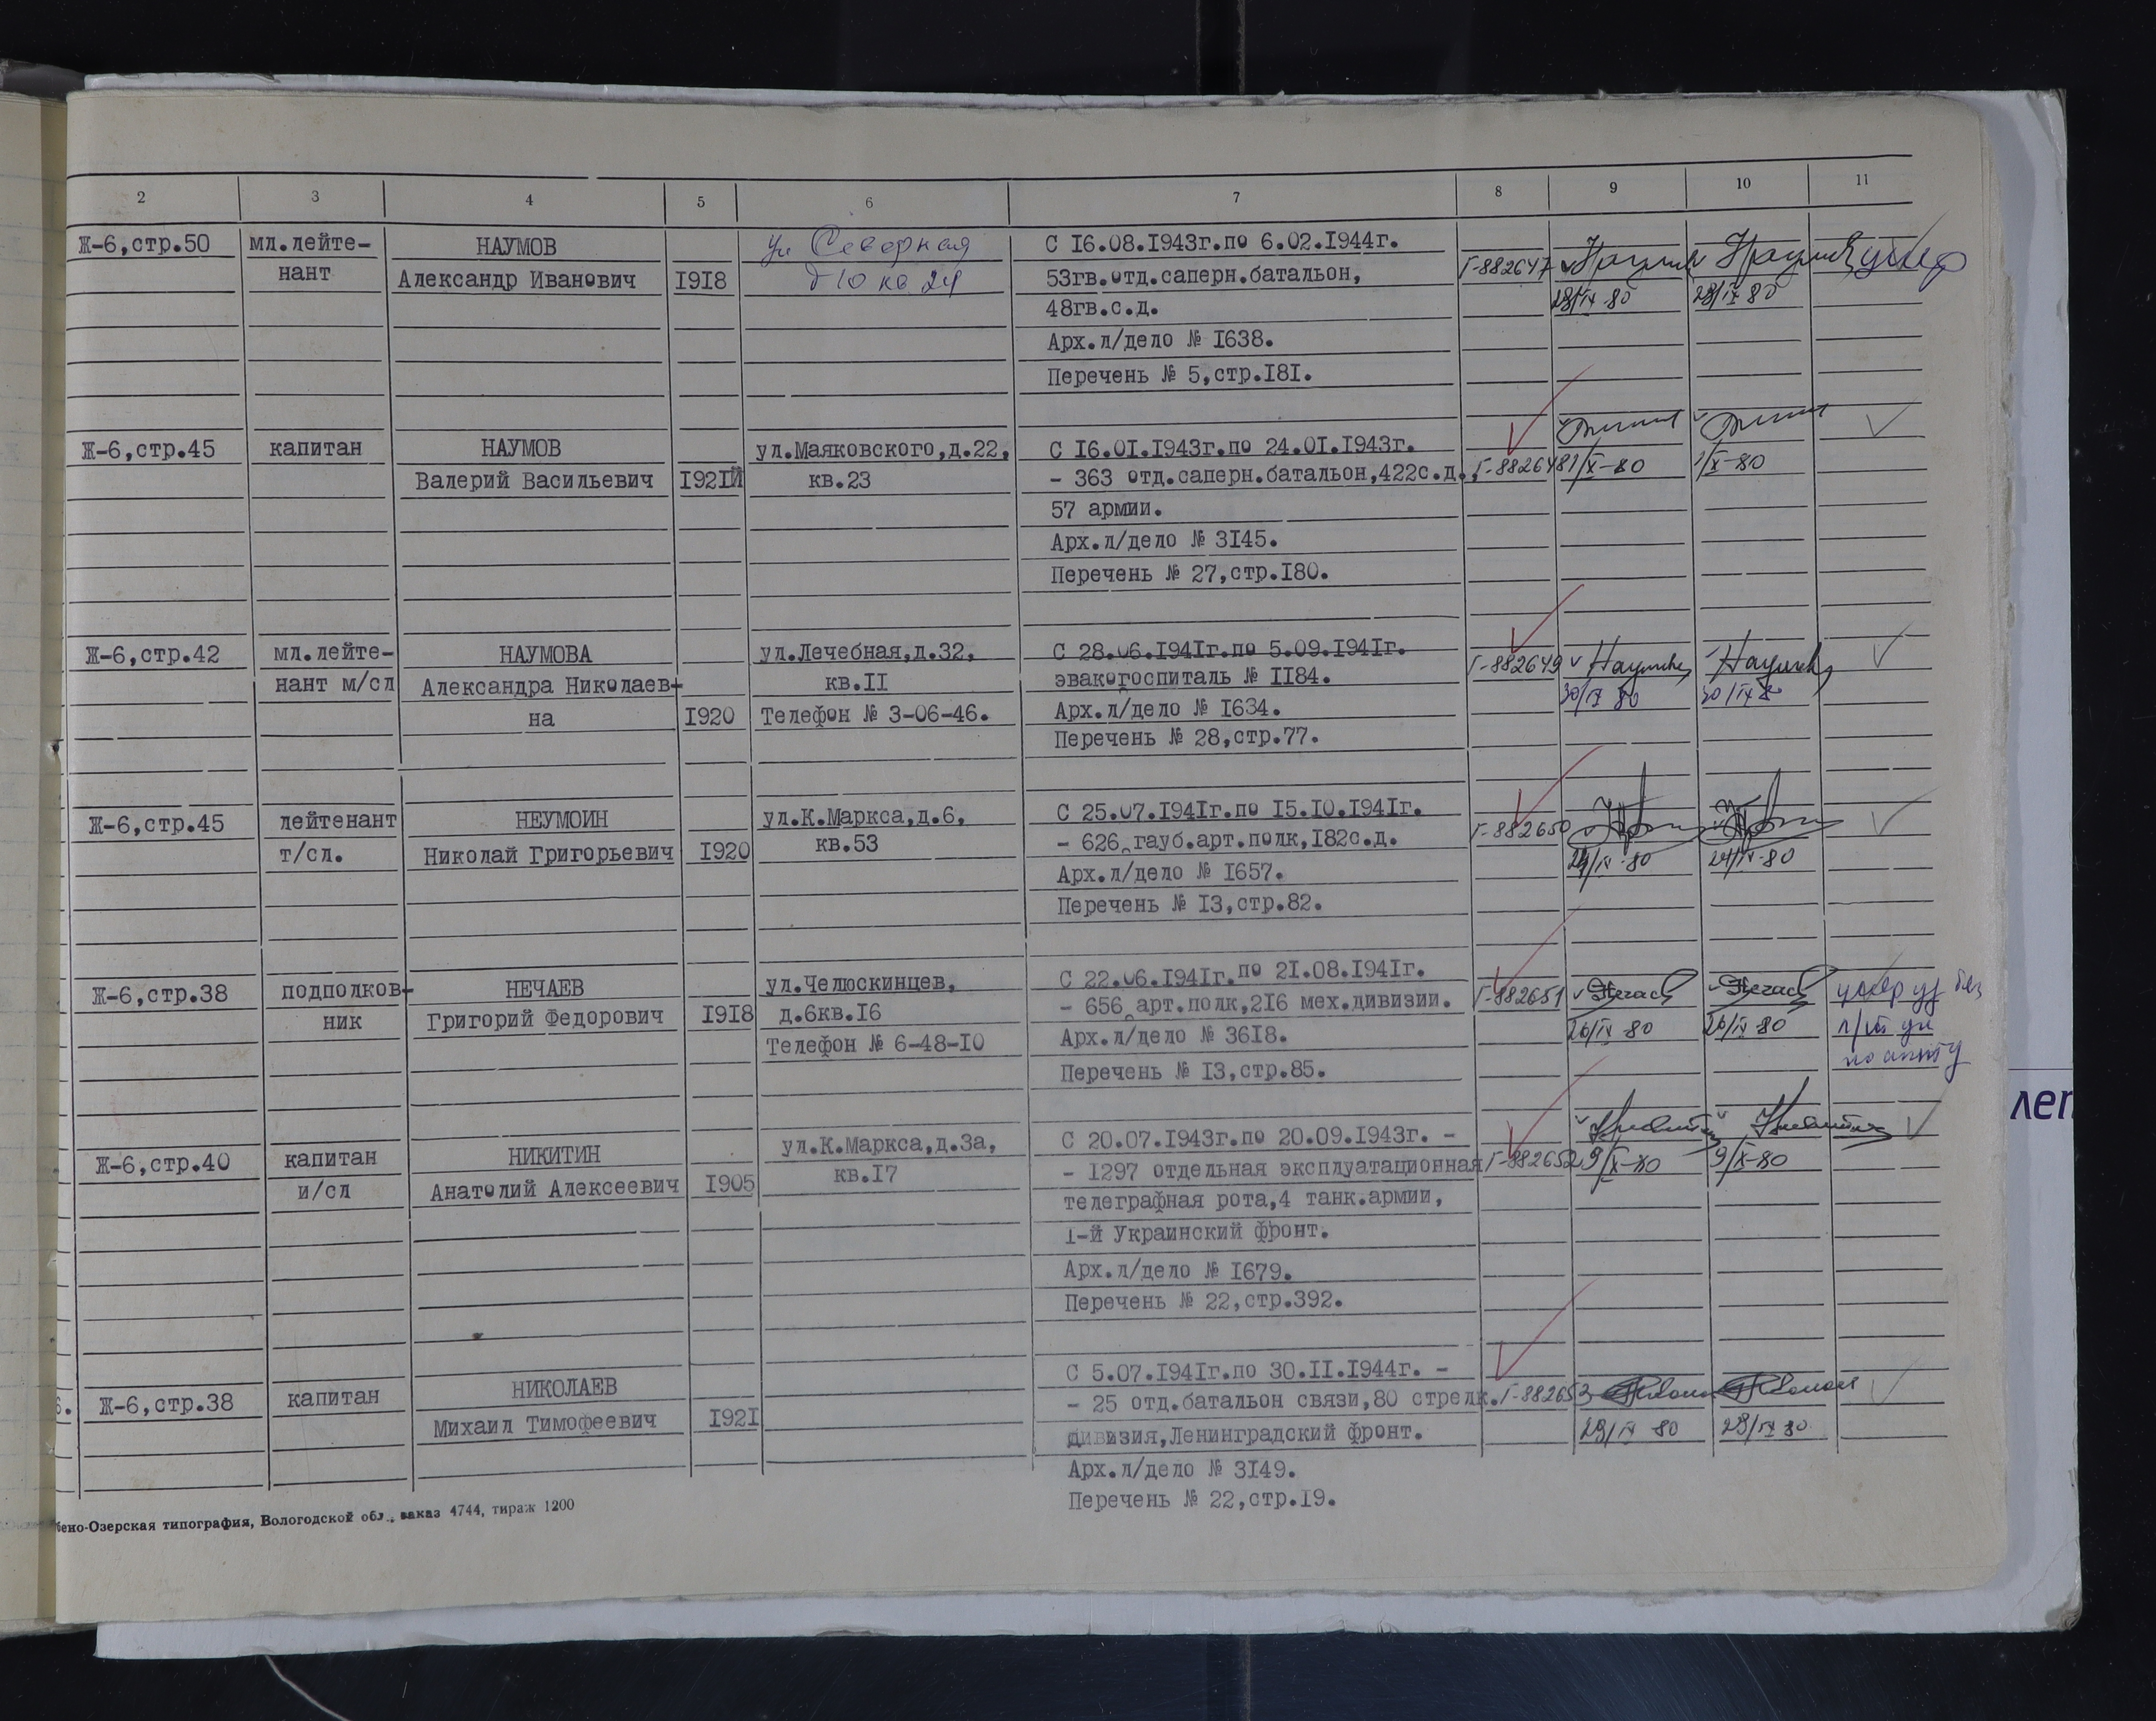 2 3 4 5 6 7 8 9 10 11
Ж-6,стр.50 мл.лейте- НАУМОВ ул Северная С I6.08.I943г.по 6.02.I944г.
нант Александр Иванович I9I8 д 10 кв 24 53гв.отд.саперн.батальон, Г-882647
48гв.с.д. 28/IX 80 28/IX 80
Арх.л/дело № I638.
Перечень № 5,стр.I8I.
Ж-6,стр.45 капитан НАУМОВ ул.Маяковского,д.22, С I6.0I.I943г.по 24.0I.I943г.
Валерий Васильевич I92I кв.23 - 363 отд.саперн.батальон,422с.д., Г-882648 1/X-80 1/X-80
57 армии.
Арх.л/дело № 3I45.
Перечень № 27,стр.I80.
Ж-6,стр.42 мл.лейте- НАУМОВА ул.Лечебная,д.32, С 28.06.I94Iг.по 5.09.I94Iг.
нант м/сл Александра Николаев- кв.II эвакогоспиталь № II84. Г-882649
на I920 Телефон № 3-06-46. Арх.л/дело № I634. 30/IX 80 30/IX 80
Перечень № 28,стр.77.
Ж-6,стр.45 лейтенант НЕУМОИН ул.К.Маркса,д.6, С 25.07.I94Iг.по I5.I0.I94Iг.
т/сл. Николай Григорьевич I920 кв.53 - 626 гауб.арт.полк,I82с.д. Г-882650
Арх.л/дело № I657. 24/IX-80 24/IX-80
Перечень № I3,стр.82.
Ж-6,стр.38 подполков- НЕЧАЕВ ул.Челюскинцев, С 22.06.I94Iг.по 2I.08.I94Iг.
ник Григорий Федорович I9I8 д.6кв.I6 - 656 арт.полк,2I6 мех.дивизии. Г-882651
Телефон № 6-48-I0 Арх.л/дело № 36I8. 26/IX-80 26/IX-80
Перечень № I3,стр.85.
Ж-6,стр.40 капитан НИКИТИН ул.К.Маркса,д.3а, С 20.07.I943г.по 20.09.I943г. -
и/сл Анатолий Алексеевич I905 кв.I7 - I297 отдельная эксплуатационная Г-882652 9/X-80 9/X-80
телеграфная рота,4 танк.армии,
I-й Украинский фронт.
Арх.л/дело № I679.
Перечень № 22,стр.392.
Ж-6,стр.38 капитан НИКОЛАЕВ С 5.07.I94Iг.по 30.II.I944г. -
Михаил Тимофеевич I92I - 25 отд.батальон связи,80 стрелк. Г-882653
дивизия,Ленинградский фронт. 29/IX 80 29/IX 80
Арх.л/дело № 3I49.
Перечень № 22,стр.I9.
Озерская типография, Вологодской обл., заказ 4744, тираж 1200